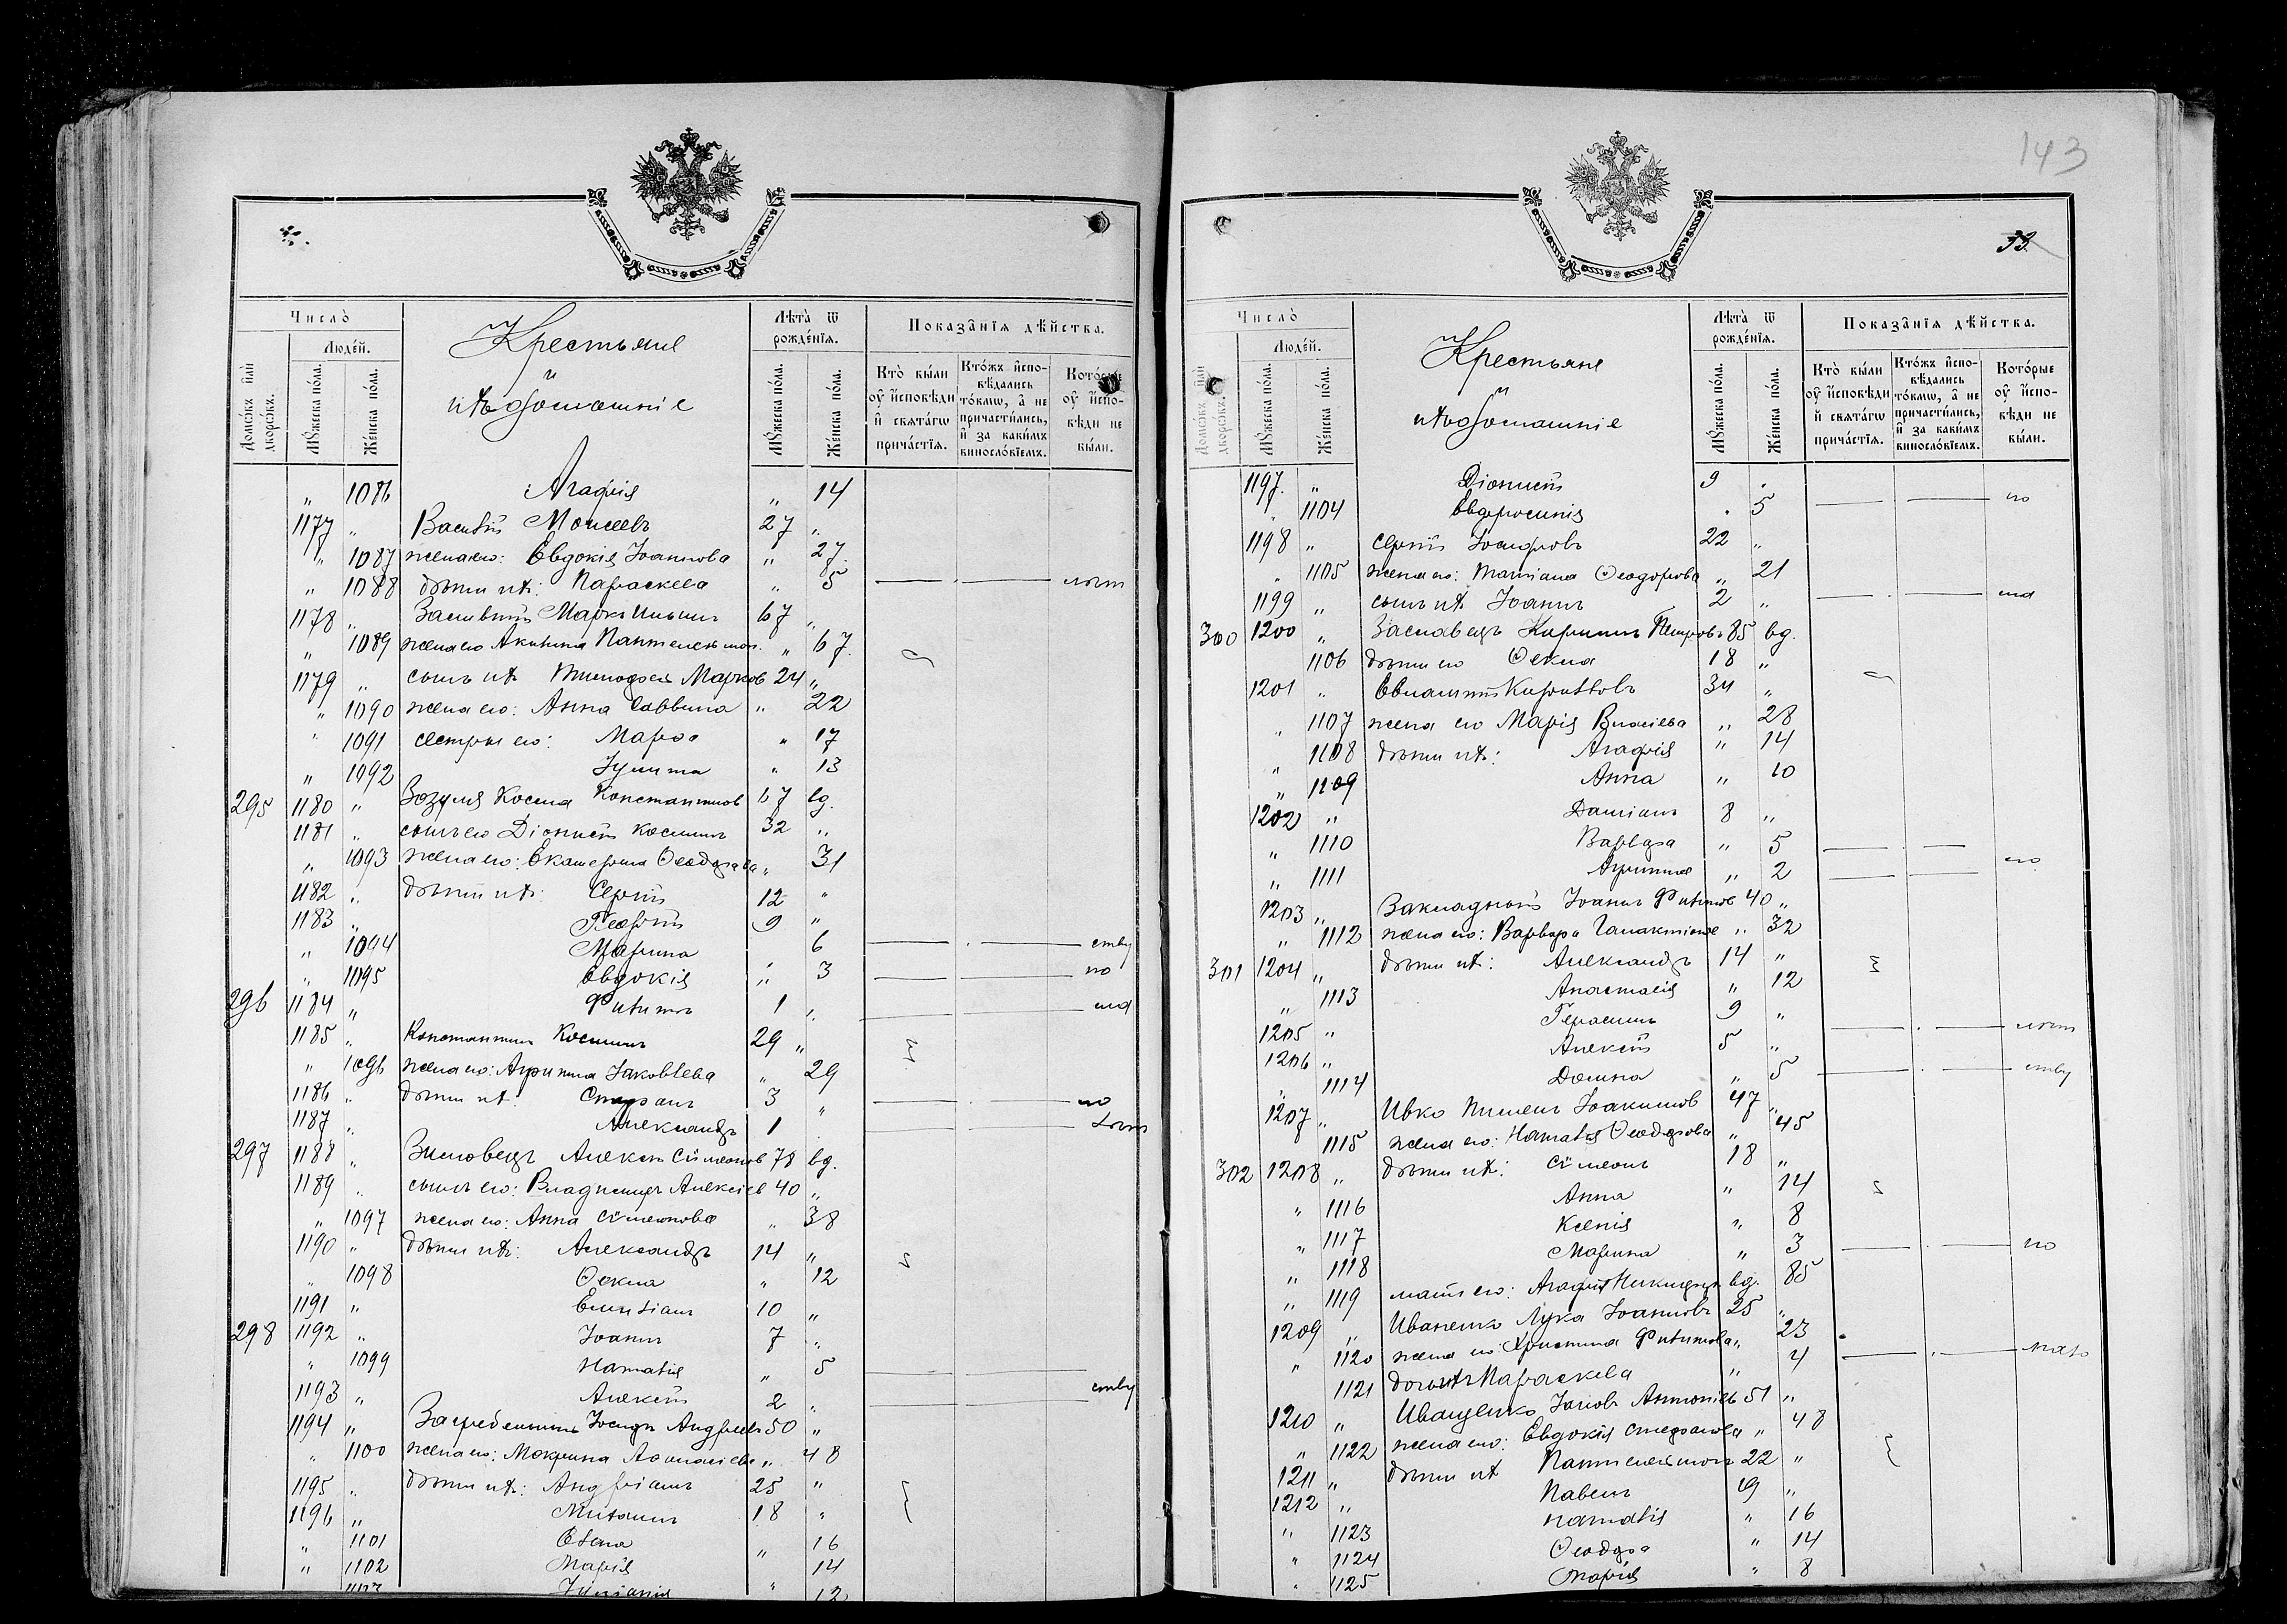 Число̀
Крестьяне
Лѣта̀ ѿ рожде́нїѧ.
Показа̑нїѧ дѣ́йства.
Люде́й.
и
ихъ домашніе
Домѡ́въ и҆лѝ дворѡ́въ.
Мꙋ́жеска по́ла.
Же́нска по́ла.
Мꙋ́жеска по́ла.
Же́нска по́ла.
Кто̀ бы́ли оу҆ и҆сповѣди и҆ свѧта́гѡ прича́стїѧ.
Кто́жъ и҆сповѣ́дались то́кмѡ, а҆ не причасти́лись, и҆ за каки́мъ винослові́емъ.
Кото́рые оу҆ и҆сповѣди не бы́ли.
„ 1086 Агафія „ 14
1177 „ Василій Моисеевъ 27 „
„ 1087 жена его: Евдокія Іоаннова „ 27
„ 1088 дѣти ихъ: Параскева „ 5
1178 „ Маркъ Ильинъ 67 „
„ 1089 жена его Акилина „ 67
1179 „ сынъ ихъ Тимофей Марков 24 „
„ 1090 жена его: Анна Саввина „ 22
„ 1091 сестры его: Марфа „ 17
„ 1092 Іулита „ 13
295 1180 „ Зозуля Косма Константинов 67 вд.
1181 „ сынъ его Діонисій Космин 32 „
„ 1093 жена его: Екатерина Ѳеодорова „ 31
1182 „ дѣти ихъ: Сергій 12 „
1183 „ Георгій 9 „
„ 1094 Марина 6
„ 1095 Евдокія „ 3 по
296 1184 „ Филиппъ 1 „
1185 „ Константинъ Косминъ 29 „
„ 1096 жена его: Агрипина Іаковлева „ 29
1186 „ дѣти их: Стефанъ 3 „
1187 „ Александръ 1
297 1188 „ Зиновецъ Алексій Симеонов 78 вд.
1189 „ сынъ его: Владиміръ Алексіев 40 „
„ 1097 жена его: Анна Симеонова „ 38
1190 „ дѣти ихъ: Александръ 14 „
„ 1098 Ѳекла „ 12
1191 „ Емиліанъ 10 „
298 1192 „ Іоаннъ 7 „
„ 1099 Наталія „ 5
1193 „ Алексій 2 „
1194 „ Іосифъ Андреевъ 50 „
„ 1100 жена его: Макрина Аѳанасіева „ 48
1195 „ дѣти ихъ: Андріанъ 25 „
1196 „ Михаилъ 18 „
„ 1101 Елена „ 16
„ 1102 Марія 14
1103 Іуліанія „ 12
143
33.
Число̀
Крестьяне
Лѣта̀ ѿ рожде́нїѧ.
Показа̑нїѧ дѣ́йства.
Люде́й.
и
ихъ домашніе
Домѡ́въ и҆лѝ дворѡ́въ.
Мꙋ́жеска по́ла.
Же́нска по́ла.
Мꙋ́жеска по́ла.
Же́нска по́ла.
Кто̀ бы́ли оу҆ и҆сповѣди и҆ свѧта́гѡ прича́стїѧ.
Кто́жъ и҆сповѣ́дались то́кмѡ, а҆ не причасти́лись, и҆ за каки́мъ винослові́емъ.
Кото́рые оу҆ и҆сповѣди не бы́ли.
1197. „ Діонисій 9
1104 Евфросинія 5 по
1198 „ Сергій Іосифовъ 22 „
1105 жена его: Татіана Ѳеодорова „ 21
1199 „ сынъ ихъ Іоаннъ 2 „
300 1200 „ Заславецъ Кириллъ Петровъ 85 вд.
1106 дѣти его Ѳекла 18 „
1201 „ Евлампій Кирилловъ 34 „
„ 1107 жена его Марія Власіева „ 28
„ 1108 дѣти ихъ: Агафія „ 14
„ 1109 Анна „ 10
1202 „ Даміанъ 8 „
„ 1110 Варвара „ 5
„ 1111 Агрипина „ 2 по
1203 „ Закладной Іоаннъ Филиппов 40 „
„ 1112 жена его: Варвара Галактіонова „ 32
301 1204 „ дѣти ихъ: Александръ 14 „
„ 1113 Анастасія „ 12
1205 „ Герасимъ 9 „
1206 „ Алексій 5 „
„ 1114 Домна „ 5
1207 „ Ивко Пименъ Іоакимов 47 „
1115 жена его: Наталія Ѳеодорова „ 45
302 1208 „ дѣти ихъ: Симеонъ 18 „
„ 1116 Анна „ 14
„ 1117 Ксенія „ 8
„ 1118 Марина „ 3 по
„ 1119 мать его: Агафія вд. 85
1209 „ Иваненко Лука Іоанновъ 25 „
„ 1120 жена его: Христина Филиппова „ 23
1121 дочь ихъ Параскева „ 4
1210 „ Иващенко Іаковъ Антоніевъ 51 „
„ 1122 жена его: Евдокія Стефанова „ 48
1211 „ дѣти ихъ Пантелеимонъ 22 „
1212 „ Павелъ 19 „
„ 1123 Наталія „ 16
„ 1124 Ѳеодора „ 14
„ 1125 Марія „ 8